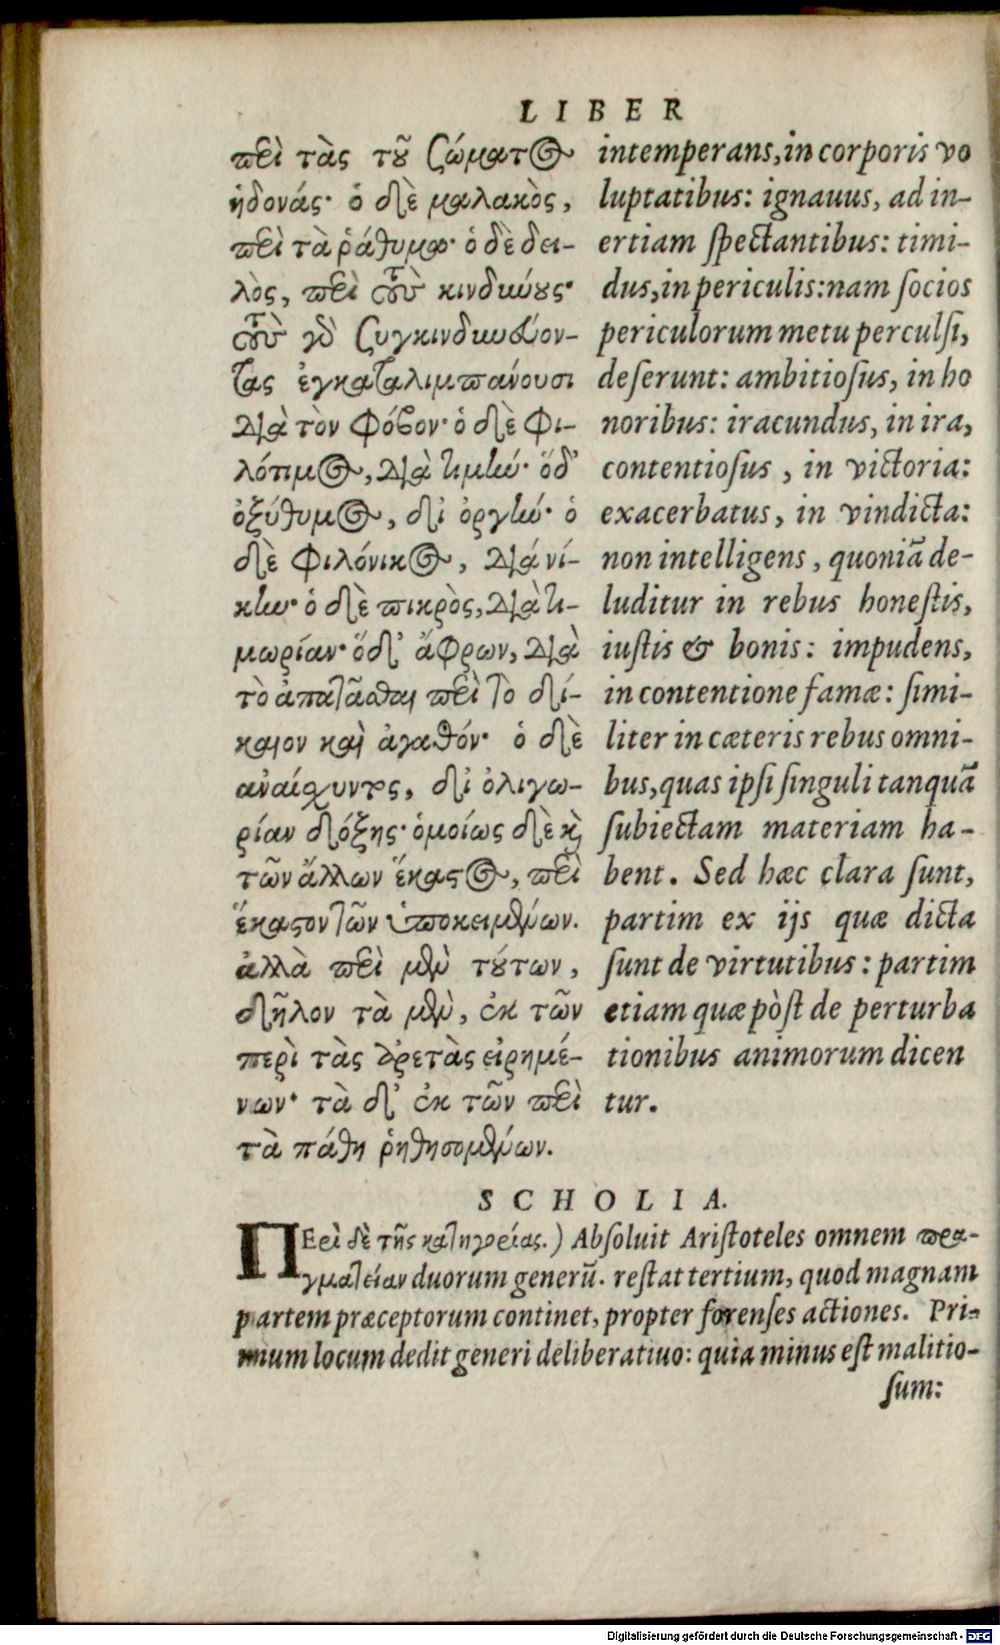 LIBER
περὶ τὰς τοῦ σώματος
ἡδονάς· ὁ δὲ μαλακὸς,
περὶ τὰ ῥάθυμα· ὁ δὲ δει-
λὸς, περὶ τοὺς κινδύνους·
τοὺς γὰρ συγκινδυνεύον-
τας ἐγκαταλιμπάνουσι
διὰ τὸν φόβον· ὁ δὲ φι-
λότιμος, διὰ τιμήν· ὅδ'
ὀξύθυμος, δι' ὀργήν· ὁ
δὲ φιλόνικος, διά νί-
κην· ὁ δὲ πικρὸς, διὰ τι-
μωρίαν· ὅδ' ἄφρων, διὰ
τὸ ἀπατᾶσθαι περὶ τὸ δί-
καιον καὶ ἀγαθόν· ὁ δὲ
ἀναίσχυντος, δι' ὀλιγω-
ρίαν δόξης· ὁμοίως δὲ καὶ
τῶν ἄλλων ἕκαστος, περὶ
ἕκαστον τῶν ὑποκειμένων.
ἀλλὰ περὶ μὲν τούτων,
δῆλον τὰ μὲν, ἐκ τῶν
περὶ τὰς ἀρετὰς εἰρημέ-
νων· τὰ δ' ἐκ τῶν περὶ
τὰ πάθη ῥηθησομένων.
intemperans, in corporis vo
luptatibus: ignauus, ad in-
ertiam spectantibus: timi-
dus, in periculis: nam socios
periculorum metu perculsi,
deserunt: ambitiosus, in ho
noribus: iracundus, in ira,
contentiosus, in victoria:
exacerbatus, in vindicta:
non intelligens, quoniã de-
luditur in rebus honestis,
iustis & bonis: impudens,
in contentione famæ: simi-
liter in cæteris rebus omni-
bus, quas ipsi singuli tanquã
subiectam materiam ha-
bent. Sed hæc clara sunt,
partim ex ijs quæ dicta
sunt de virtutibus: partim
etiam quæ pòst de perturba
tionibus animorum dicen
tur.
SCHOLIA.
ΠΕρὶ δὲ τῆς κατηγορίας.) Absoluit Aristoteles omnem πρα-
γματείαν duorum generũ. restat tertium, quod magnam
partem præceptorum continet, propter forenses actiones. Pri-
mum locum dedit generi deliberatiuo: quia minus est malitio-
sum:
Digitalisierung gefördert durch die Deutsche Forschungsgemeinschaft - DFG